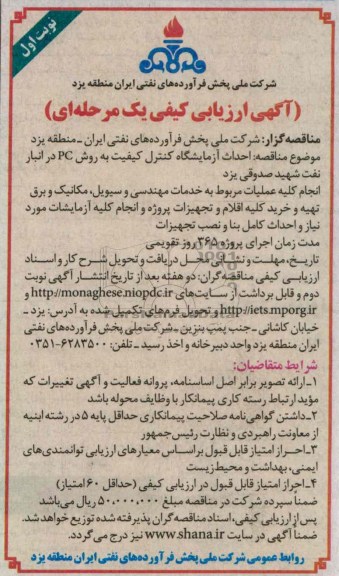 نوبت اول
شرکت ملی پخش فرآورده‌های نفتی ایران منطقه یزد
(آگهی ارزیابی کیفی یک مرحله‌ای)
مناقصه‌گزار: شرکت ملی پخش فرآورده‌های نفتی ایران ـ منطقه یزد
موضوع مناقصه: احداث آزمایشگاه کنترل کیفیت به روش PC در انبار
نفت شهید صدوقی یزد
انجام کلیه عملیات مربوط به خدمات مهندسی و سیویل، مکانیک و برق
تهیه و خرید کلیه اقلام و تجهیزات پروژه و انجام کلیه آزمایشات مورد
نیاز و احداث کامل بنا و نصب تجهیزات
مدت زمان اجرای پروژه ۳۶۵ روز تقویمی
تاریخ، مهلت و نشانی محل دریافت و تحویل شرح کار و اسناد
ارزیابی کیفی مناقصه‌گران: دو هفته بعد از تاریخ انتشار آگهی نوبت
دوم و قابل برداشت از سایت‌های http://monaghese.niopdc.ir و
http://iets.mporg.ir و تحویل فرم‌های تکمیل شده به آدرس: یزد ـ
خیابان کاشانی ـ جنب پمپ بنزین ـ شرکت ملی پخش فرآورده‌های نفتی
ایران منطقه یزد واحد دبیرخانه و اخذ رسید ـ تلفن: ۶۲۸۳۵۰۰-۰۳۵۱
شرایط متقاضیان:
۱ـ ارائه تصویر برابر اصل اساسنامه، پروانه فعالیت و آگهی تغییرات که
مؤید ارتباط رسته کاری پیمانکار با وظایف محوله باشد
۲ـ داشتن گواهی‌نامه صلاحیت پیمانکاری حداقل پایه ۵ در رشته ابنیه
از معاونت راهبردی و نظارت رئیس جمهور
۳ـ احراز امتیاز قابل قبول براساس معیارهای ارزیابی توانمندی‌های
ایمنی، بهداشت و محیط زیست
۴ـ احراز امتیاز قابل قبول در ارزیابی کیفی (حداقل ۶۰ امتیاز)
ضمناً سپرده شرکت در مناقصه مبلغ ۵۰,۰۰۰,۰۰۰ ریال می‌باشد
پس از ارزیابی کیفی، اسناد مناقصه‌گران پذیرفته شده توزیع خواهد شد.
ضمناً آگهی در سایت www.shana.ir نیز درج می‌گردد.
روابط عمومی شرکت ملی پخش فرآورده‌های نفتی ایران منطقه یزد